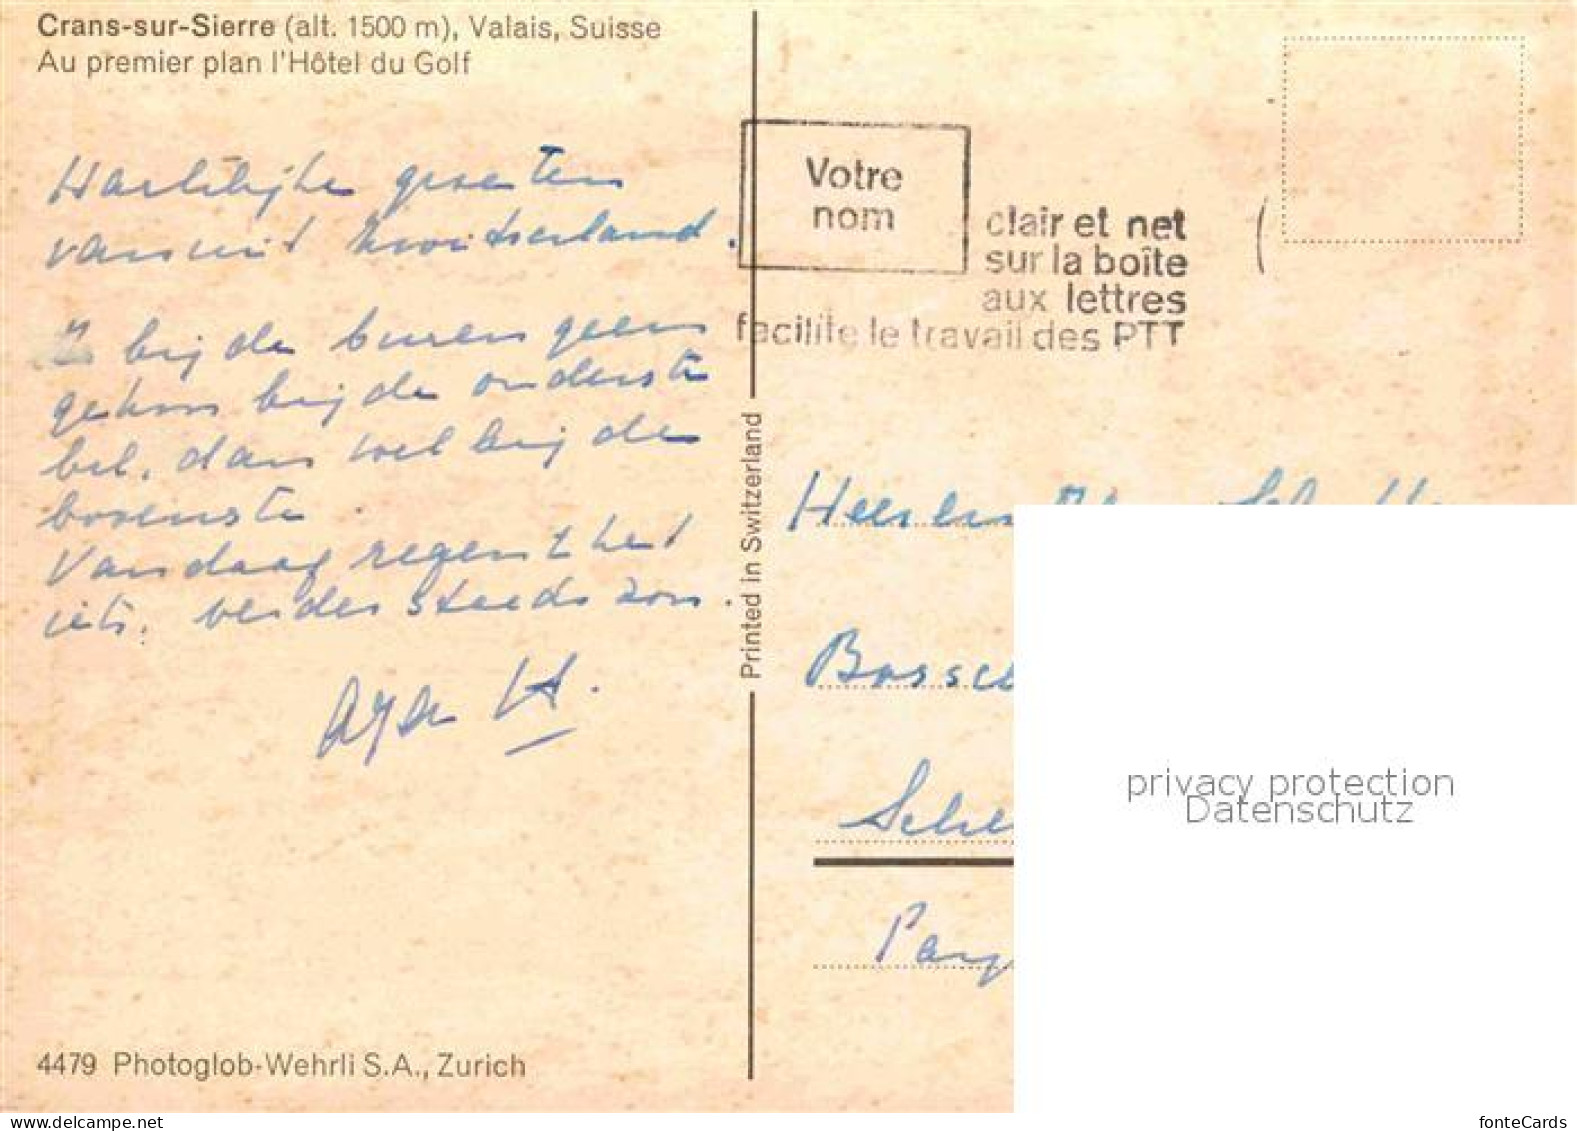 Crans-sur-Sierre (alt. 1500 m), Valais, Suisse
Au premier plan l'Hôtel du Golf
Hartelijke groeten
vanuit Zwitserland.
Is bij de buren geen
gehoor bij de onderste
bel, dan wel bij de
bovenste.
Vandaag regent het
iets, verder steeds zon.
Votre
nom
clair et net
sur la boîte
aux lettres
facilite le travail des PTT
Printed in Switzerland
4479 Photoglob-Wehrli S.A., Zurich
privacy protection
Datenschutz
fonteCards